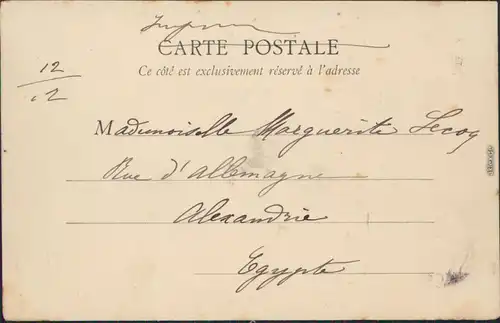 CARTE POSTALE
Ce côté est exclusivement réservé à l'adresse
12
Mademoiselle Marguerite Lecoq
Rue d'Allemagne
Alexandrie
Egypte